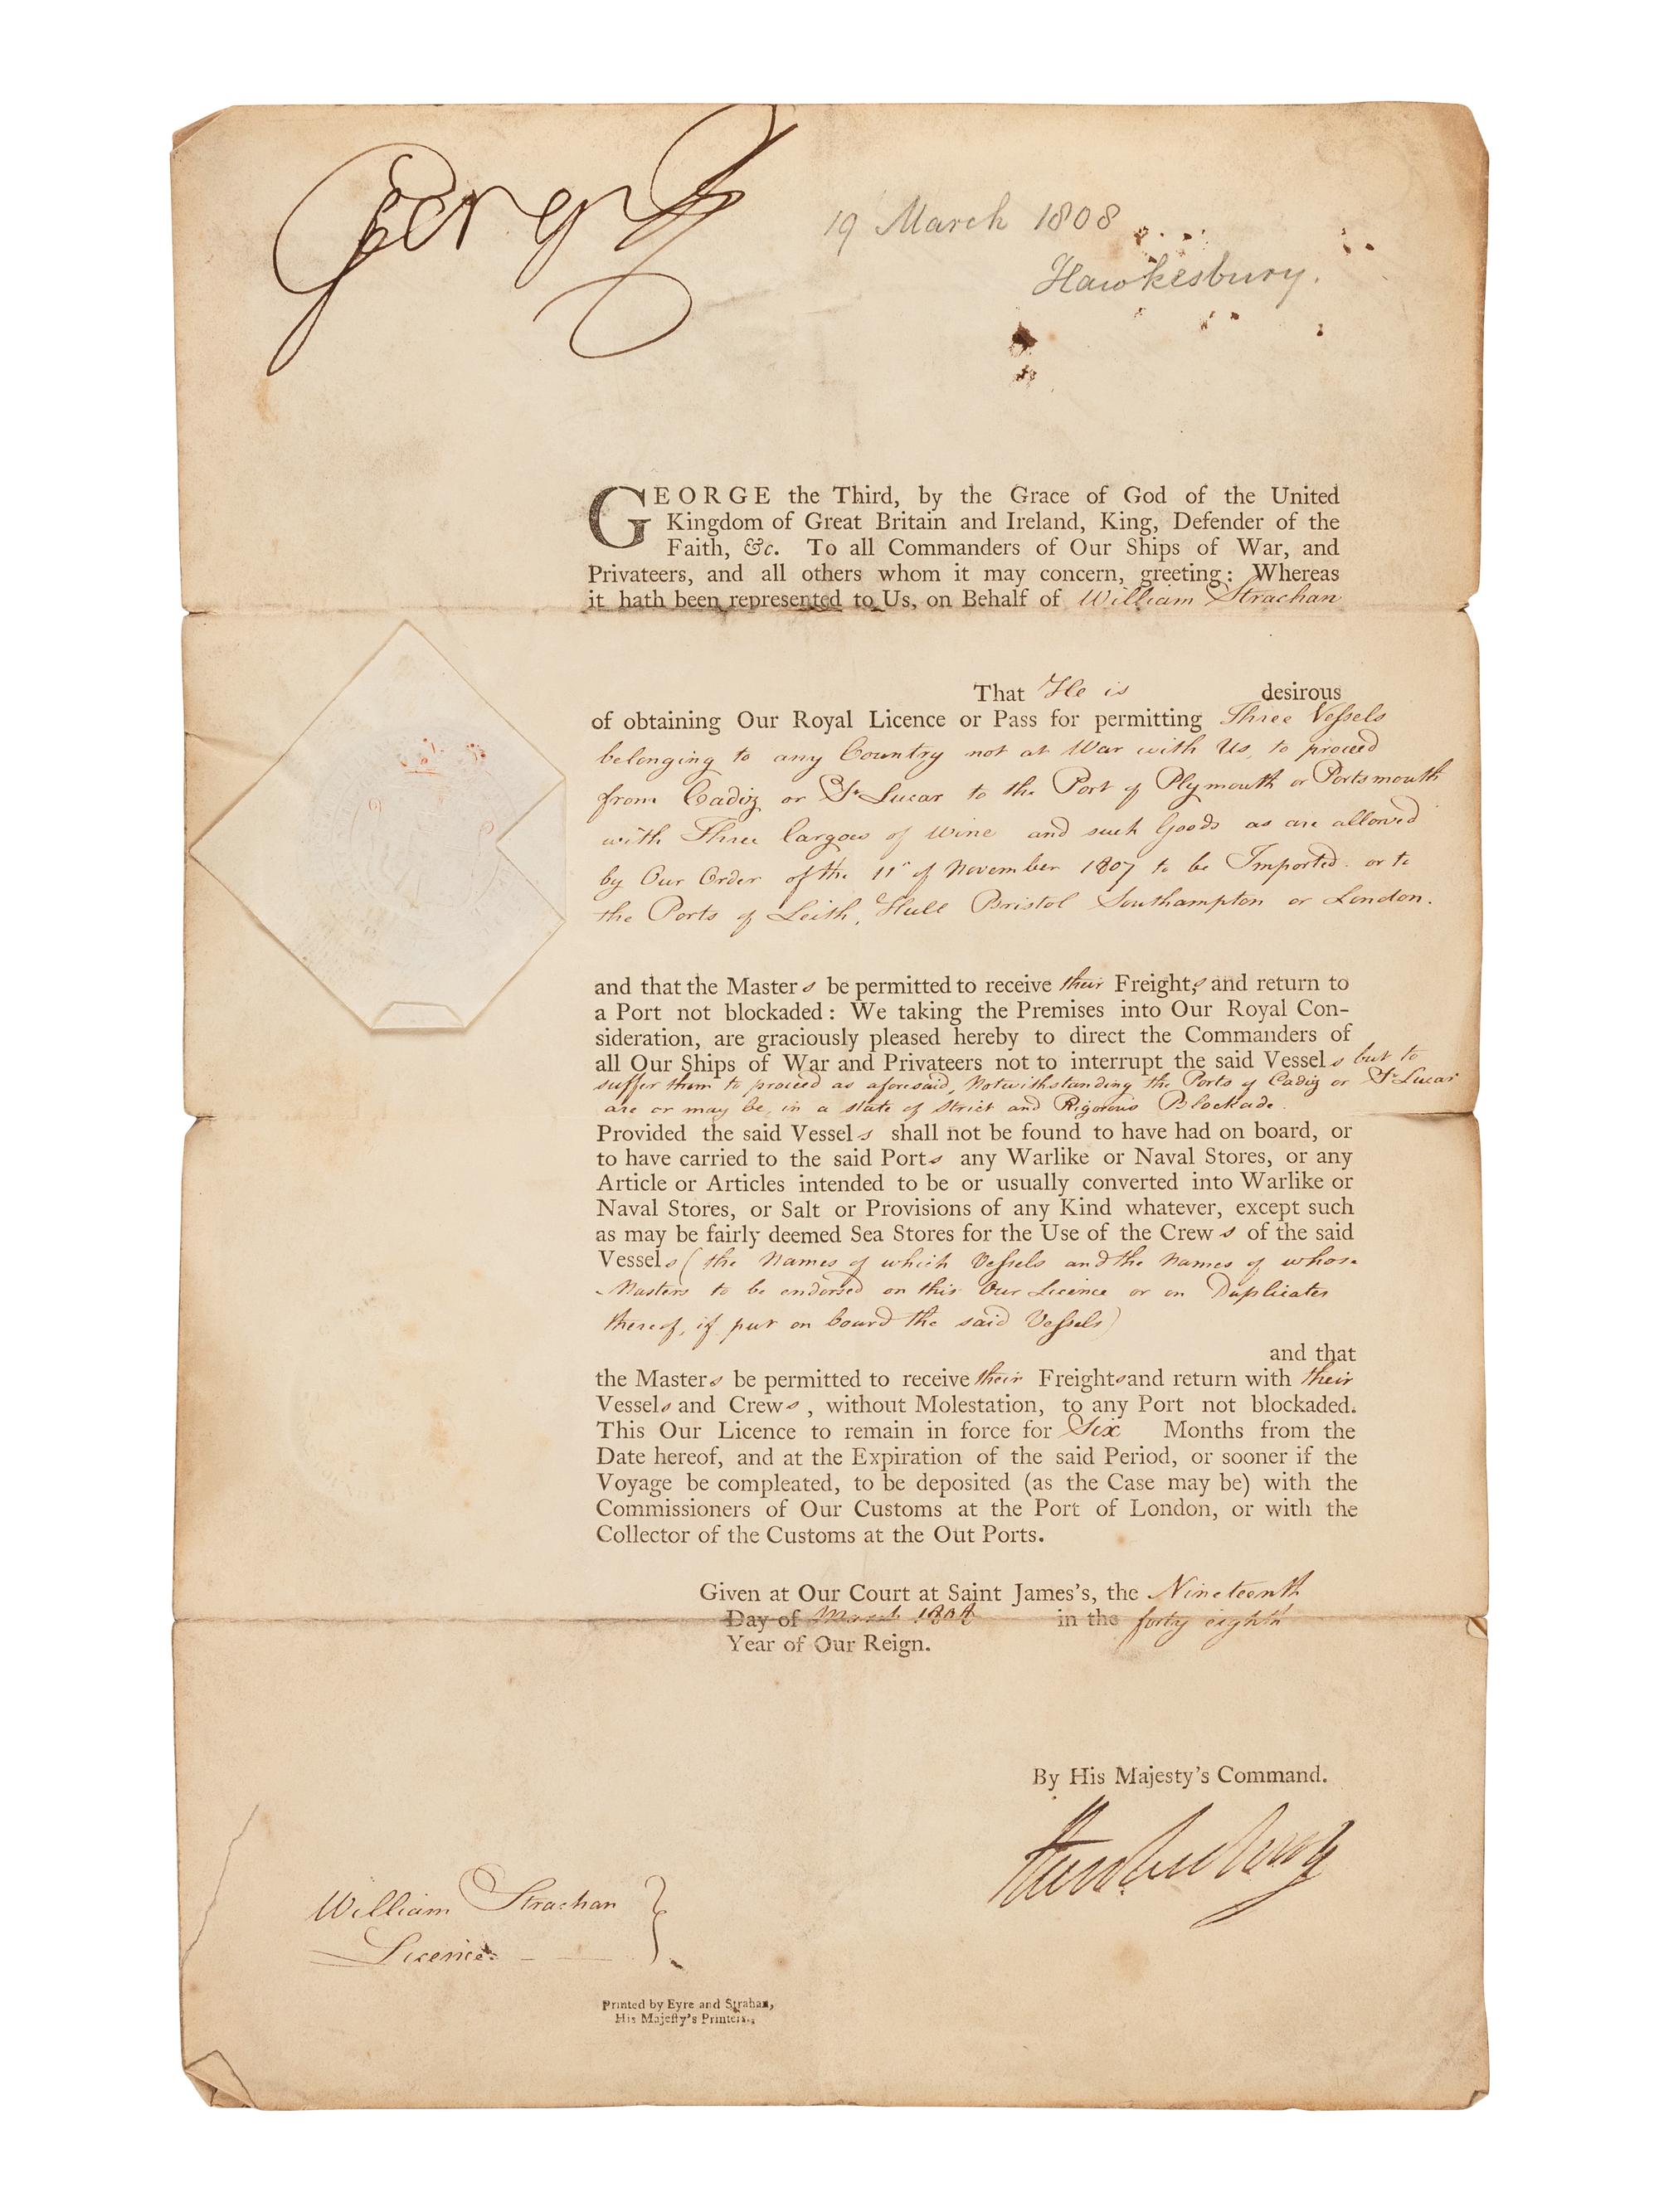 George R
19 March 1808
Hawkesbury.
GEORGE the Third, by the Grace of God of the United
Kingdom of Great Britain and Ireland, King, Defender of the
Faith, &c. To all Commanders of Our Ships of War, and
Privateers, and all others whom it may concern, greeting: Whereas
it hath been represented to Us, on Behalf of William Strachan
That He is desirous
of obtaining Our Royal Licence or Pass for permitting Three Vessels
belonging to any Country not at War with Us, to proceed
from Cadiz or St. Lucar to the Port of Plymouth or Portsmouth
with Three Cargoes of Wine and such Goods as are allowed
by Our Order of the 11th of November 1807 to be Imported. or to
the Ports of Leith, Hull Bristol Southampton or London.
and that the Masters be permitted to receive their Freights, and return to
a Port not blockaded: We taking the Premises into Our Royal Con-
sideration, are graciously pleased hereby to direct the Commanders of
all Our Ships of War and Privateers not to interrupt the said Vessels but to
suffer them to proceed as aforesaid, Notwithstanding the Ports of Cadiz or St. Lucar
are or may be in a state of Strict and Rigorous Blockade.
Provided the said Vessels shall not be found to have had on board, or
to have carried to the said Ports any Warlike or Naval Stores, or any
Article or Articles intended to be or usually converted into Warlike or
Naval Stores, or Salt or Provisions of any Kind whatever, except such
as may be fairly deemed Sea Stores for the Use of the Crews of the said
Vessels (the Names of which Vessels and the Names of whose
Masters to be endorsed on this Our Licence or on Duplicates
thereof, if put on board the said Vessels)
and that
the Masters be permitted to receive their Freights and return with their
Vessels and Crews, without Molestation, to any Port not blockaded.
This Our Licence to remain in force for Six Months from the
Date hereof, and at the Expiration of the said Period, or sooner if the
Voyage be compleated, to be deposited (as the Case may be) with the
Commissioners of Our Customs at the Port of London, or with the
Collector of the Customs at the Out Ports.
Given at Our Court at Saint James's, the Nineteenth
Day of March 1808 in the forty eighth
Year of Our Reign.
By His Majesty's Command.
Hawkesbury
William Strachan
Licence
Printed by Eyre and Strahan,
His Majesty's Printers.